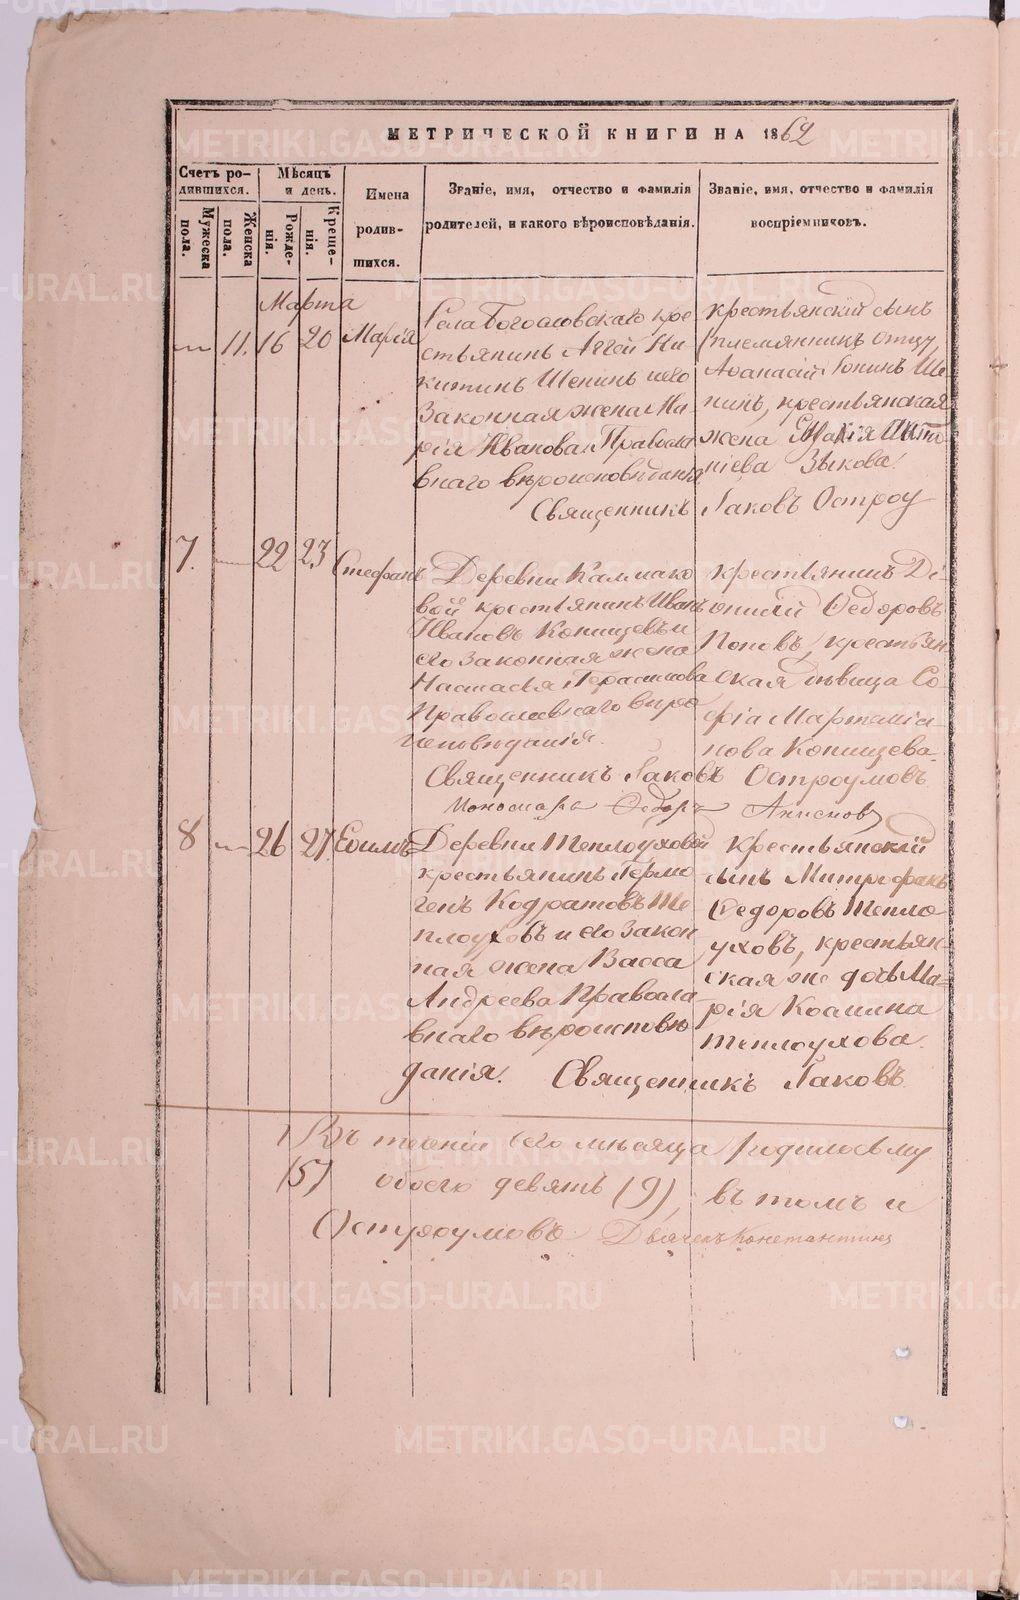 МЕТРИЧЕСКОЙ КНИГИ НА 1862
Счетъ ро-
дившихся.
Мужеска
пола.
Женска
пола.
Мѣсяцъ
и день.
Рожде-
нія.
Креще-
нія.
Имена
родив-
шихся.
Званіе, имя, отчество и фамилія
родителей, и какого вѣроисповѣданія.
Званіе, имя, отчество и фамилія
воспріемниковъ.
Марта
11. 16 20 Марія
Села Богословскаго кре
стьянинъ Аггей Ни
китинъ Шенинъ и его
Законная жена Ма
рія Иванова Правосла
внаго вѣроисповѣданія
крестьянскій сынъ
племянникъ отцу,
Аѳанасій Шe
нинъ, крестьянская
жена
Зыкова.
Священникъ Іаковъ Остроу
7. 22 23 Стефанъ
Деревни Калмако
вой крестьянинъ Иванъ
Ивановъ Копищевъ и
его Законная жена
Настасья Герасимова
Православнаго вѣро
исповѣданія.
крестьянинъ Ді-
онисій Ѳедоровъ
Поповъ, крестьян
ская дѣвица Со-
фіа Мартиміа-
нова Копищева.
Священникъ Іаковъ Остроумовъ
Пономарь Ѳедоръ
8 26 27 Еѳимъ
Деревни Теплоуховой
крестьянинъ Гермо
генъ Кодратовъ Те
плоуховъ и его Закон
ная жена Васса
Андреева Правосла
внаго вѣроисповѣ
данія.
Крестьянскій
сынъ Митрофанъ
Ѳедоровъ Тепло
уховъ, крестьян-
ская же дочь Ма-
рія Косьмина
Теплоухова.
Священникъ Іаковъ
Въ теченіи сего мѣсяца родилось му
(5) обоего девять (9), въ томъ и
Остроумовъ Дьячекъ Константинъ
METRIKI.GASO-URAL.RU